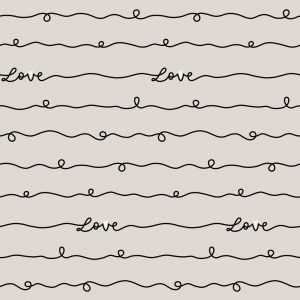 Love Love
Love Love